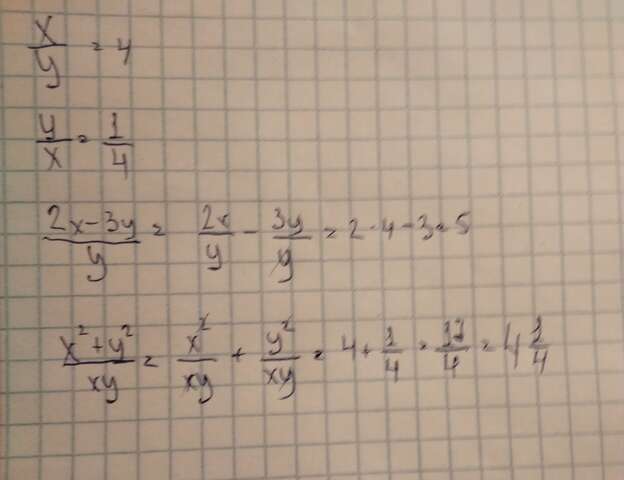 x/y = 4
y/x = 1/4
(2x-3y)/y = 2x/y - 3y/y = 2·4-3=5
(x²+y²)/xy = x²/xy + y²/xy = 4+1/4 = 17/4 = 4 1/4